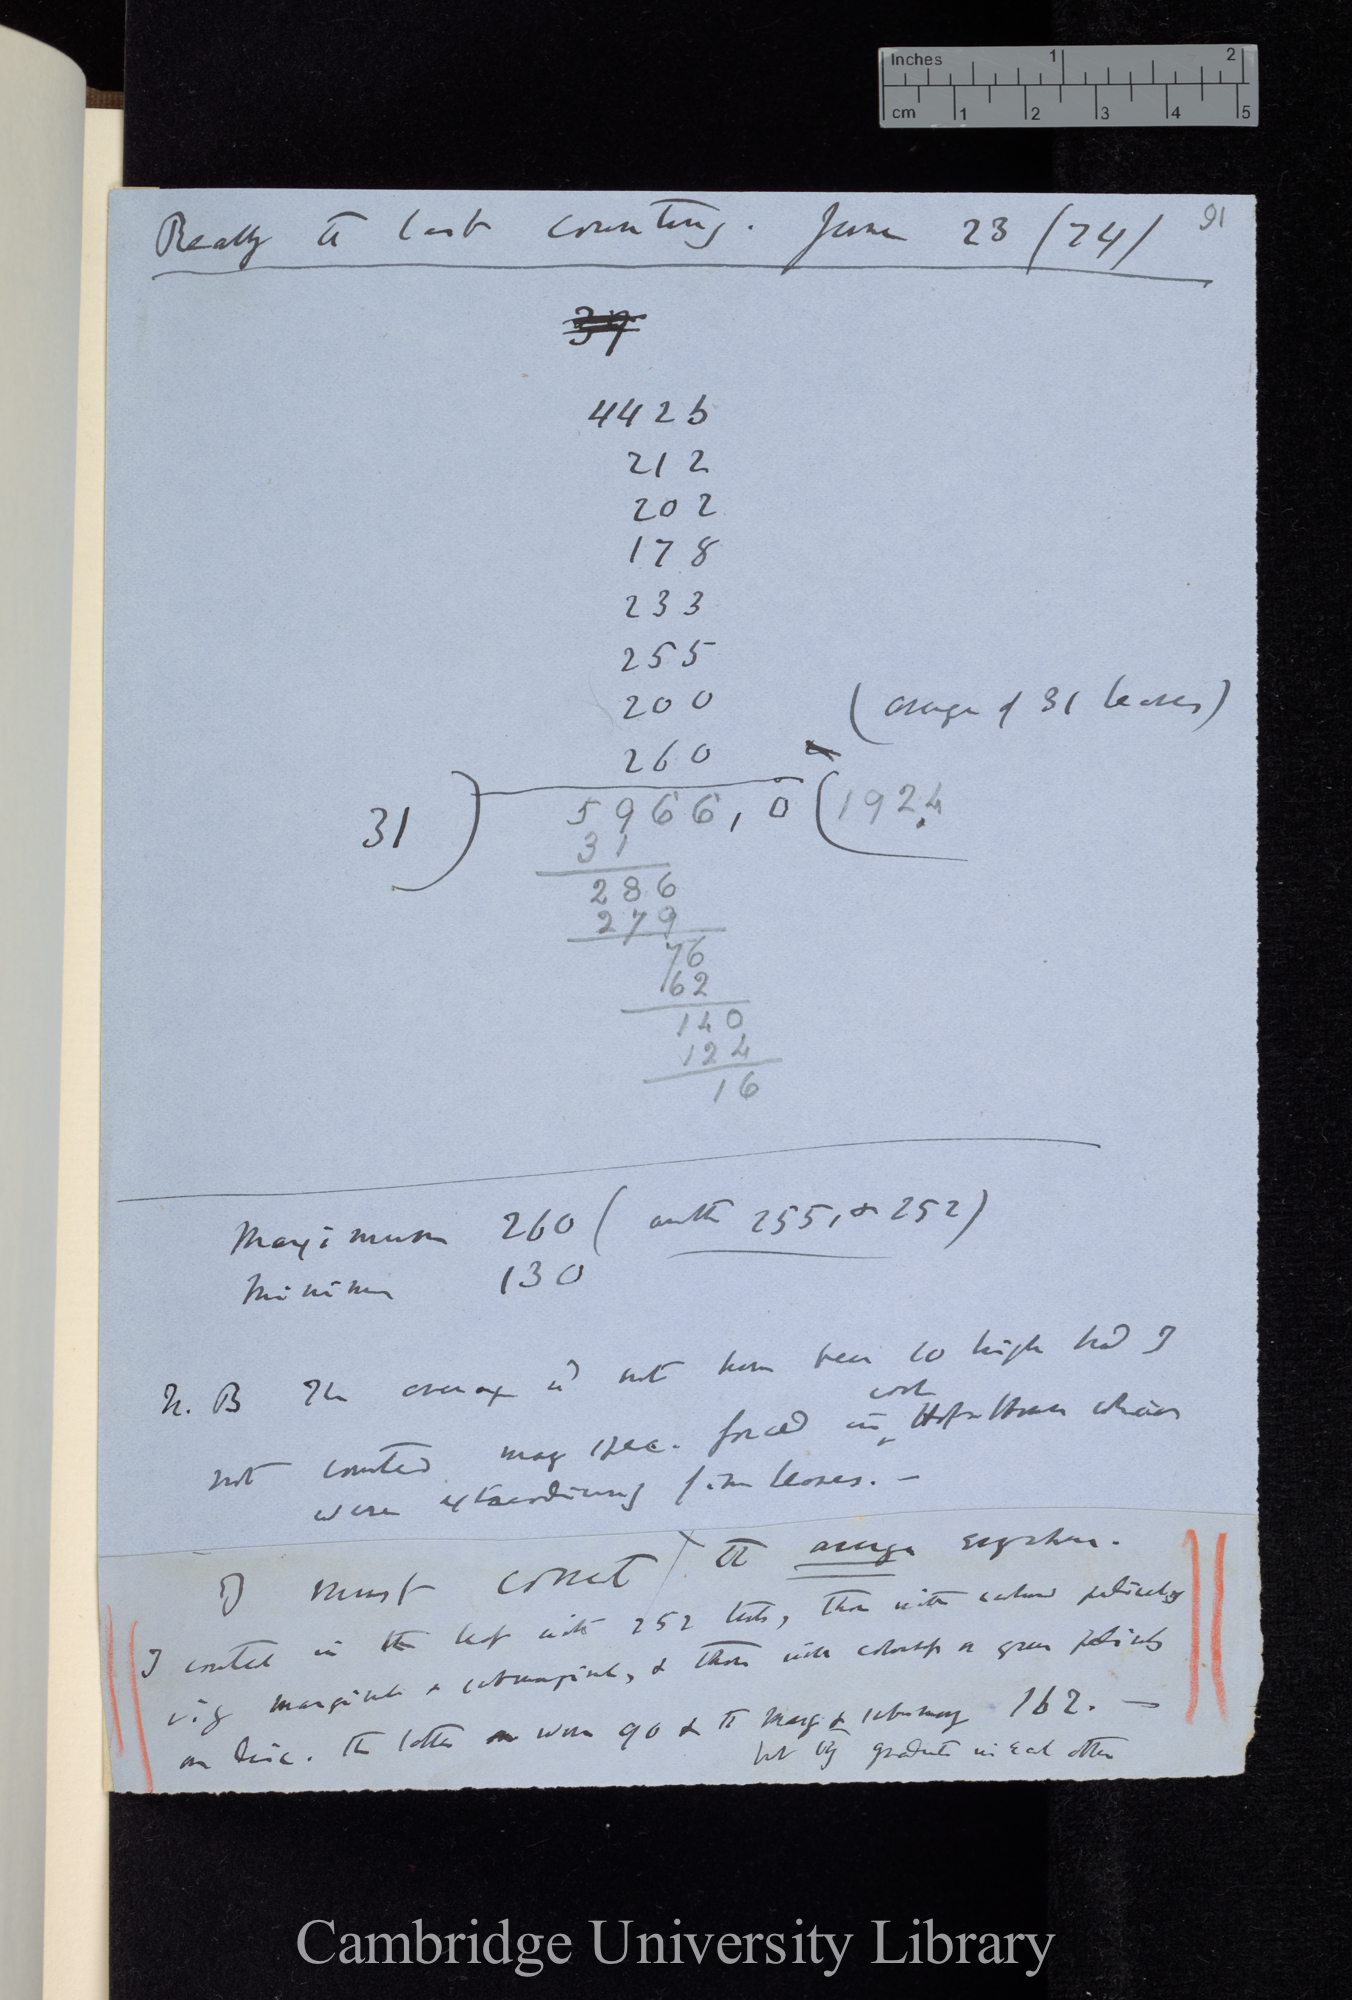 Inches 1 2
cm 1 2 3 4 5
91
Really the last counting. June 23 /74/
39
4426
212
202
178
233
255
200
(average of 31 leaves)
260
31) 5966,0 (192.4
31
286
279
76
62
140
124
16
Maximum 260 (with 255, & 252)
Minimum 130
N. B The average wd not have been so high had I
cool
not counted many spec. forced in Hot-House which
were extraordinarily fine leaves. —
I must correct the average
I counted in the leaf with 252 tent, those with
viz marginal & submarginal, & those with on green pedicels
on disc. The latter were 90 & the marg & submarg 162. —
but they graduate in each other
Cambridge University Library